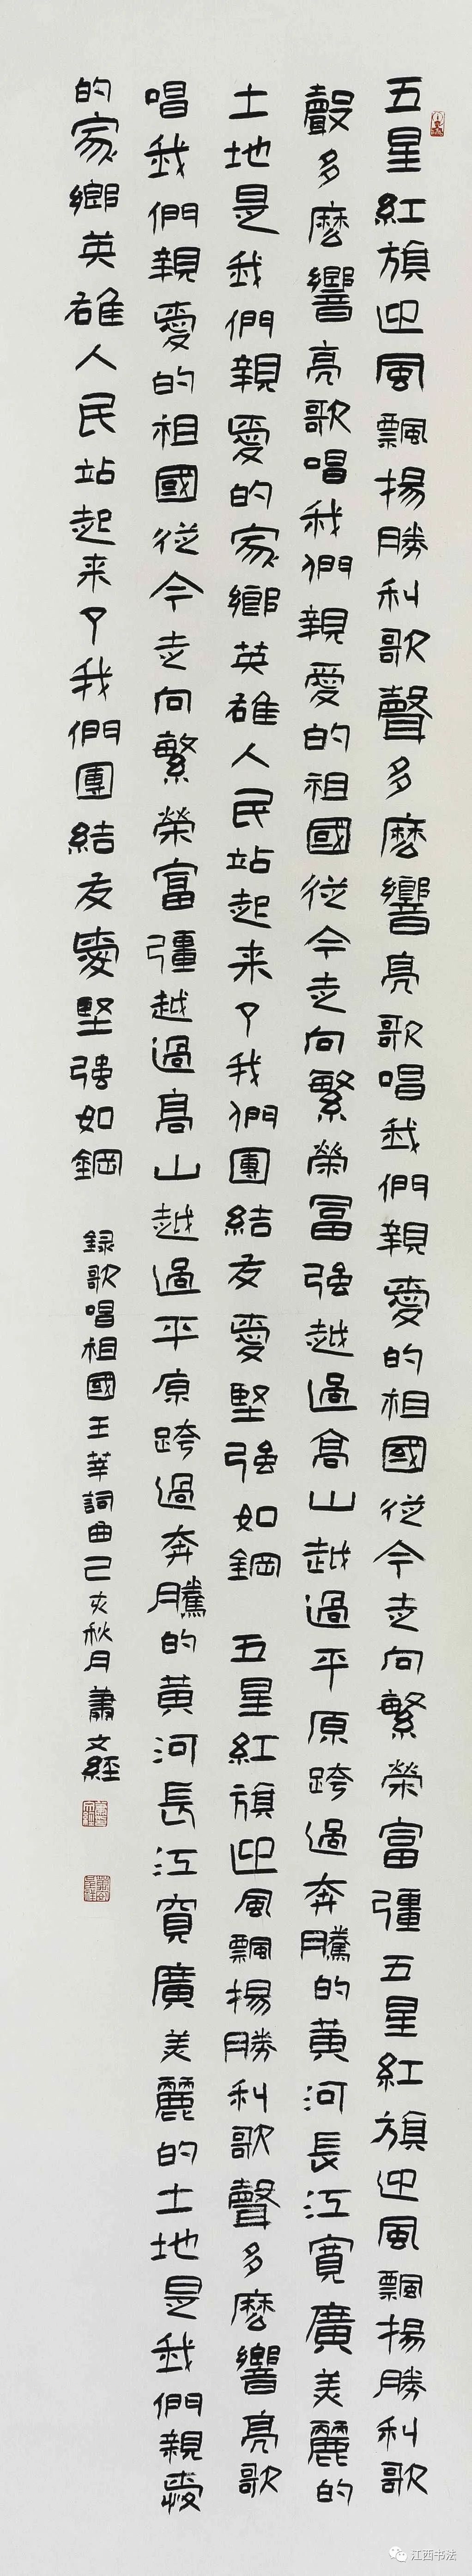 五星紅旗迎風飄揚勝利歌聲多麼響亮歌唱我們親愛的祖國從今走向繁榮富彊五星紅旗迎風飄揚勝利歌
聲多麼響亮歌唱我們親愛的祖國從今走向繁榮冨強越過高山越過平原跨過奔騰的黄河長江寬廣美麗的
土地是我們親愛的家鄉英雄人民站起来了我們團結友愛堅強如鋼 五星紅旗迎風飄揚勝利歌聲多麼響亮歌
唱我們親愛的祖國從今走向繁榮富彊越過高山越過平原跨過奔騰的黄河長江寬廣美麗的土地是我們親愛
的家鄉英雄人民站起来了我們團結友愛堅強如鋼 録歌唱祖國王莘詞曲己亥秋月蕭文經
江西书法